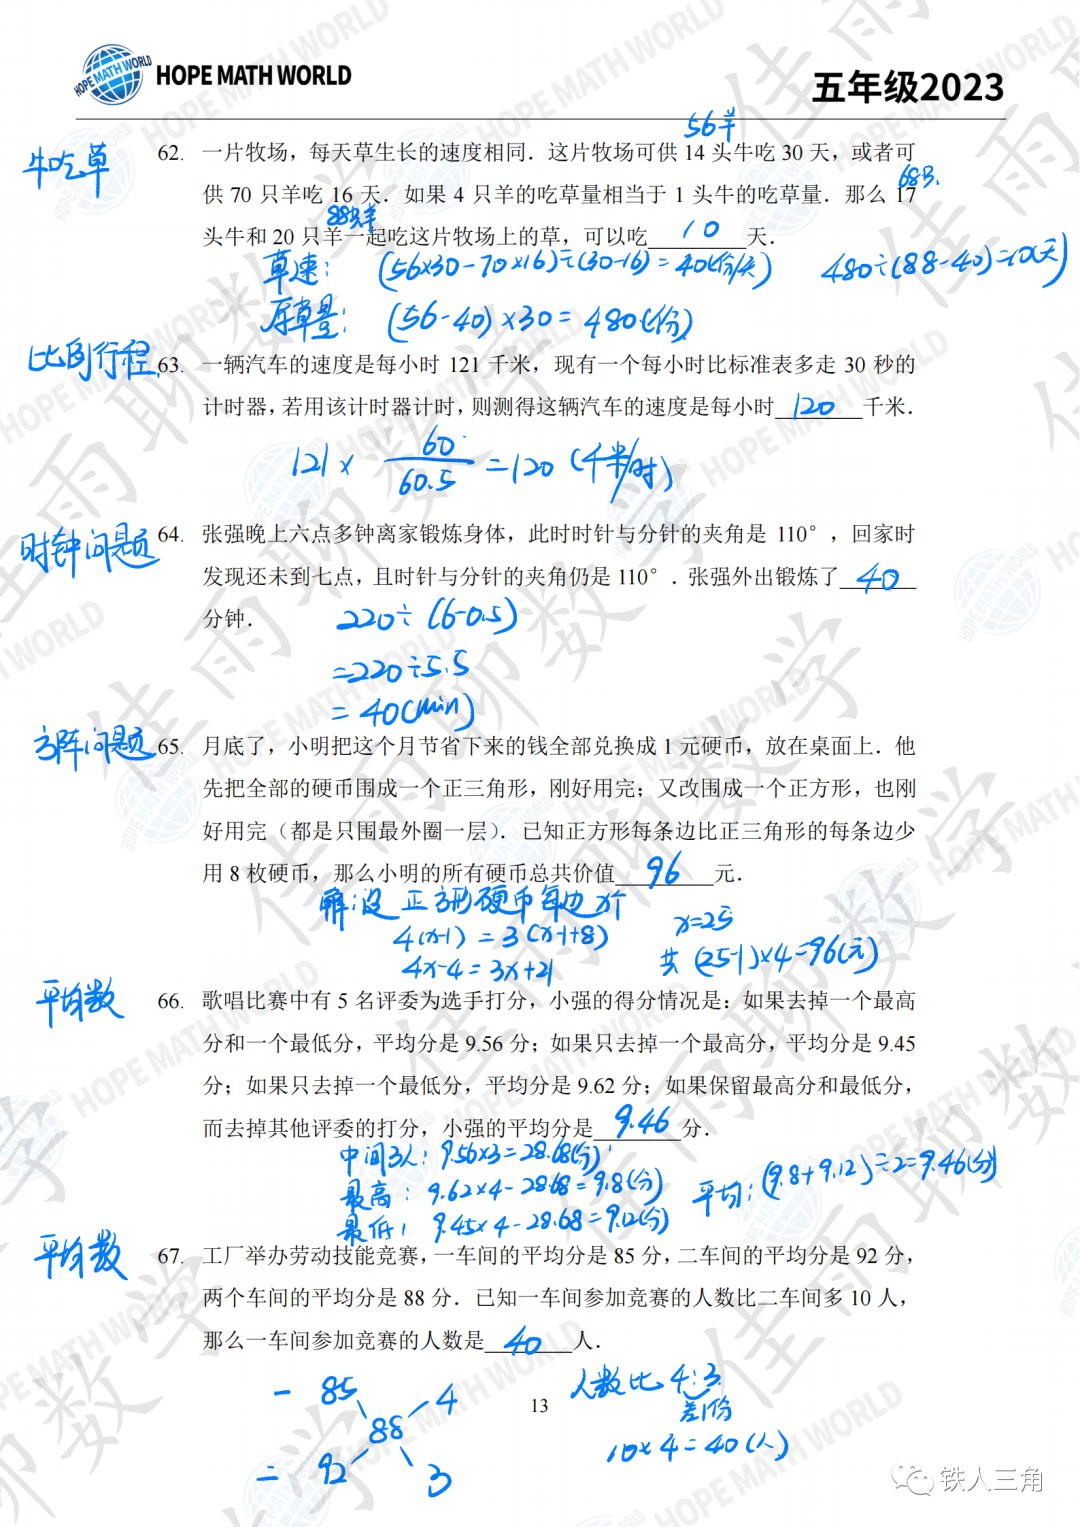 HOPE MATH WORLD
五年级2023
牛吃草
56羊
62. 一片牧场，每天草生长的速度相同．这片牧场可供 14 头牛吃 30 天，或者可
68只
供 70 只羊吃 16 天．如果 4 只羊的吃草量相当于 1 头牛的吃草量．那么 17
88只羊
头牛和 20 只羊一起吃这片牧场上的草，可以吃 10 天．
草速：(56×30-70×16)÷(30-16)=40(份/天) 480÷(88-40)=10(天)
原草量：(56-40)×30=480(份)
比例行程
63. 一辆汽车的速度是每小时 121 千米，现有一个每小时比标准表多走 30 秒的
计时器，若用该计时器计时，则测得这辆汽车的速度是每小时 120 千米．
121× 60/60.5 =120 (千米/时)
时钟问题
64. 张强晚上六点多钟离家锻炼身体，此时时针与分针的夹角是 110°，回家时
发现还未到七点，且时针与分针的夹角仍是 110°．张强外出锻炼了 40
分钟．
220÷(6-0.5)
=220÷5.5
=40(min)
方阵问题
65. 月底了，小明把这个月节省下来的钱全部兑换成 1 元硬币，放在桌面上．他
先把全部的硬币围成一个正三角形，刚好用完；又改围成一个正方形，也刚
好用完（都是只围最外圈一层）．已知正方形每条边比正三角形的每条边少
用 8 枚硬币，那么小明的所有硬币总共价值 96 元．
解：设正方形硬币每边x个
4(x-1)=3(x-1+8) x=25
4x-4=3x+21 共(25-1)×4=96(元)
平均数
66. 歌唱比赛中有 5 名评委为选手打分，小强的得分情况是：如果去掉一个最高
分和一个最低分，平均分是 9.56 分；如果只去掉一个最高分，平均分是 9.45
分；如果只去掉一个最低分，平均分是 9.62 分；如果保留最高分和最低分，
而去掉其他评委的打分，小强的平均分是 9.46 分．
中间3人：9.56×3=28.68(分)
最高：9.62×4-28.68=9.8(分) 平均：(9.8+9.12)÷2=9.46(分)
最低：9.45×4-28.68=9.12(分)
平均数
67. 工厂举办劳动技能竞赛，一车间的平均分是 85 分，二车间的平均分是 92 分，
两个车间的平均分是 88 分．已知一车间参加竞赛的人数比二车间多 10 人，
那么一车间参加竞赛的人数是 40 人．
一 85 4 人数比 4:3
88 差1份
二 92 3 10×4=40(人)
13
铁人三角
佳雨聊数学